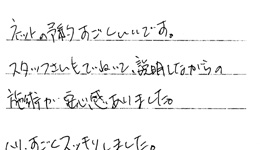 ネットの予約すごしいいです。
スタッフさんもていねいで、説明しながらの
施術が安心感ありました。
すごくスッキリしました。